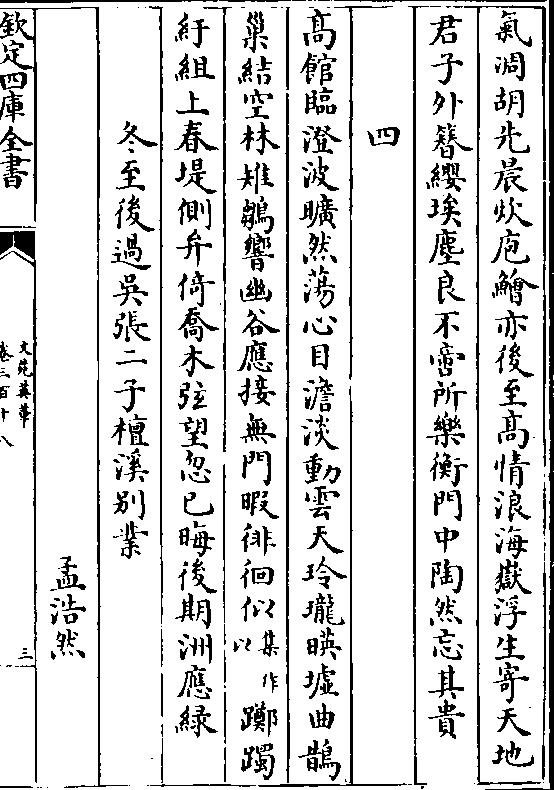 氣凋胡先晨炊庖鱠亦後至髙情浪海嶽浮生寄天地
君子外簪纓埃塵良不啻所樂衡門中陶然忘其貴
四
髙館臨澄波曠然蕩心目澹淡動雲天玲瓏暎墟曲鵲
巢結空林雉鴝響幽谷應接無門暇徘徊似集作以躑躅
紆組上春堤側弁倚喬木弦望忽已晦後期洲應緑
冬至後過吳張二子檀溪别業
孟浩然
欽定四庫全書
文苑英華
卷三百十八
三